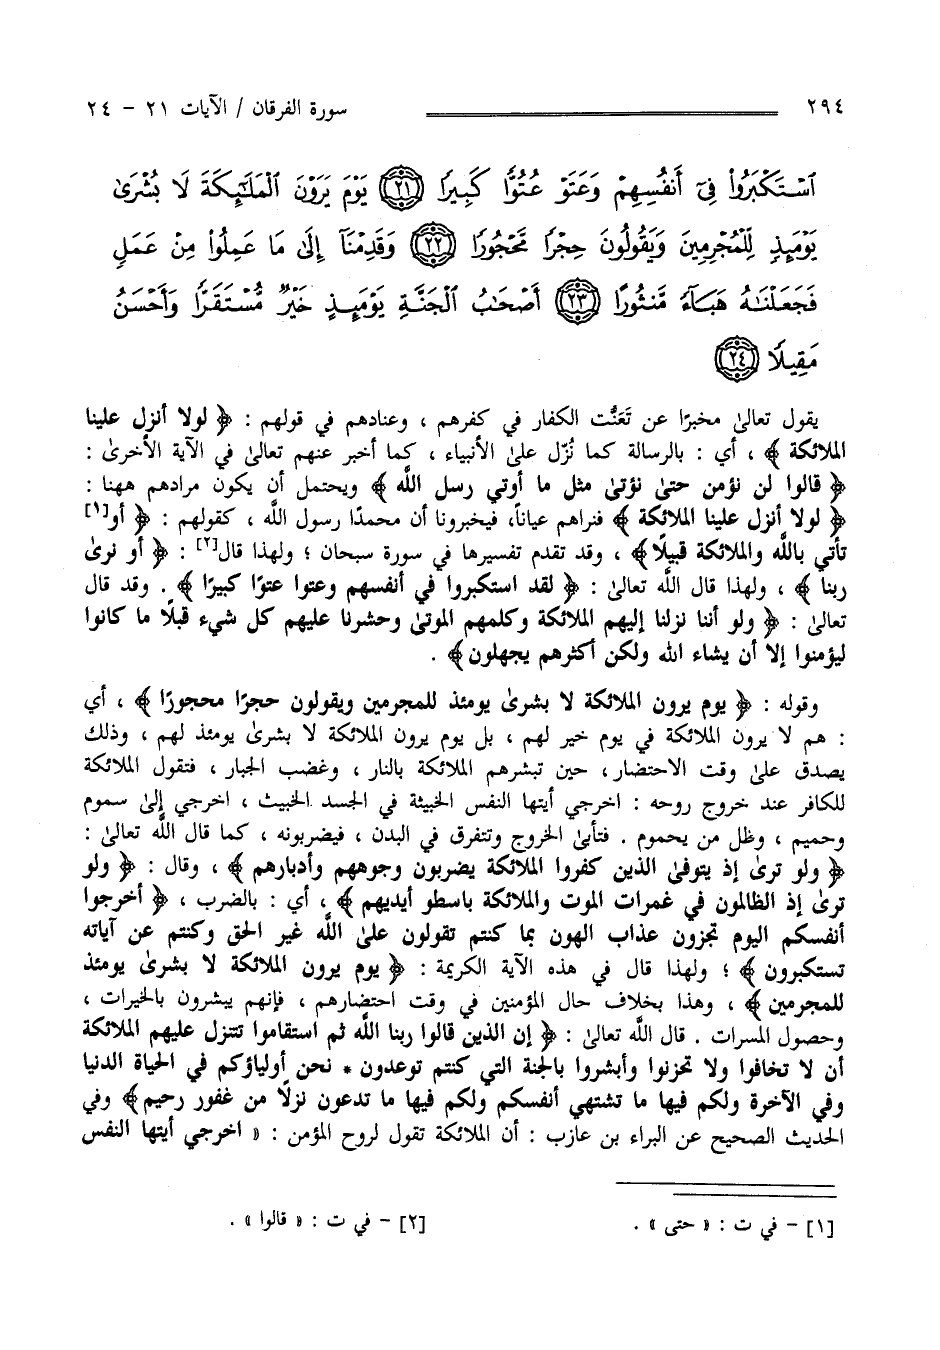 ٢٩٤ سورة الفرقان / الآيات ٢١ - ٢٤
ٱسْتَكْبَرُوا۟ فِىٓ أَنفُسِهِمْ وَعَتَوْ عُتُوًّا كَبِيرًا ﴿٢١﴾ يَوْمَ يَرَوْنَ ٱلْمَلَـٰٓئِكَةَ لَا بُشْرَىٰ
يَوْمَئِذٍ لِّلْمُجْرِمِينَ وَيَقُولُونَ حِجْرًا مَّحْجُورًا ﴿٢٢﴾ وَقَدِمْنَآ إِلَىٰ مَا عَمِلُوا۟ مِنْ عَمَلٍ
فَجَعَلْنَـٰهُ هَبَآءً مَّنثُورًا ﴿٢٣﴾ أَصْحَـٰبُ ٱلْجَنَّةِ يَوْمَئِذٍ خَيْرٌ مُّسْتَقَرًّا وَأَحْسَنُ
مَقِيلًا ﴿٢٤﴾
يقول تعالىٰ مخبرًا عن تَعَنُّت الكفار في كفرهم ، وعنادهم في قولهم : ﴿ لولا أنزل علينا
الملائكة ﴾ ، أي : بالرسالة كما نُزّل علىٰ الأنبياء ، كما أخبر عنهم تعالىٰ في الآية الأخرىٰ :
﴿ قالوا لن نؤمن حتىٰ نؤتىٰ مثل ما أوتي رسل اللَّه ﴾ ويحتمل أن يكون مرادهم ههنا :
﴿ لولا أنزل علينا الملائكة ﴾ فنراهم عياناً، فيخبرونا أن محمدًا رسول اللَّه ، كقولهم : ﴿ أو[١]
تأتي باللَّه والملائكة قبيلًا﴾ ، وقد تقدم تفسيرها في سورة سبحان ؛ ولهذا قال[٢] : ﴿ أو نرىٰ
ربنا ﴾ ، ولهذا قال اللَّه تعالىٰ : ﴿ لقد استكبروا في أنفسهم وعتوا عتوًا كبيرًا ﴾ . وقد قال
تعالىٰ : ﴿ ولو أننا نزلنا إليهم الملائكة وكلمهم الموتىٰ وحشرنا عليهم كل شيء قبلًا ما كانوا
ليؤمنوا إلا أن يشاء الله ولكن أكثرهم يجهلون﴾ .
وقوله : ﴿ يوم يرون الملائكة لا بشرىٰ يومئذ للمجرمين ويقولون حجرًا محجورًا ﴾ ، أي
: هم لا يرون الملائكة في يوم خير لهم ، بل يوم يرون الملائكة لا بشرىٰ يومئذ لهم ، وذلك
يصدق علىٰ وقت الاحتضار ، حين تبشرهم الملائكة بالنار ، وغضب الجبار ، فتقول الملائكة
للكافر عند خروج روحه : اخرجي أيتها النفس الخبيثة في الجسد الخبيث ، اخرجي إلىٰ سموم
وحميم ، وظل من يحموم . فتأبىٰ الخروج وتتفرق في البدن ، فيضربونه ، كما قال اللَّه تعالىٰ :
﴿ ولو ترىٰ إذ يتوفىٰ الذين كفروا الملائكة يضربون وجوههم وأدبارهم ﴾ ، وقال : ﴿ ولو
ترىٰ إذ الظالمون في غمرات الموت والملائكة باسطو أيديهم ﴾ ، أي : بالضرب ، ﴿ أخرجوا
أنفسكم اليوم تجزون عذاب الهون بما كنتم تقولون علىٰ اللَّه غير الحق وكنتم عن آياته
تستكبرون ﴾ ؛ ولهذا قال في هذه الآية الكريمة : ﴿ يوم يرون الملائكة لا بشرىٰ يومئذ
للمجرمين ﴾ ، وهذا بخلاف حال المؤمنين في وقت احتضارهم ، فإنهم يبشرون بالخيرات ،
وحصول المسرات . قال اللَّه تعالىٰ : ﴿ إن الذين قالوا ربنا اللَّه ثم استقاموا تتنزل عليهم الملائكة
أن لا تخافوا ولا تحزنوا وأبشروا بالجنة التي كنتم توعدون * نحن أولياؤكم في الحياة الدنيا
وفي الآخرة ولكم فيها ما تشتهي أنفسكم ولكم فيها ما تدعون نزلًا من غفور رحيم﴾ وفي
الحديث الصحيح عن البراء بن عازب : أن الملائكة تقول لروح المؤمن : « اخرجي أيتها النفس
[١] - في ت : « حتى » . [٢] - في ت : « قالوا » .